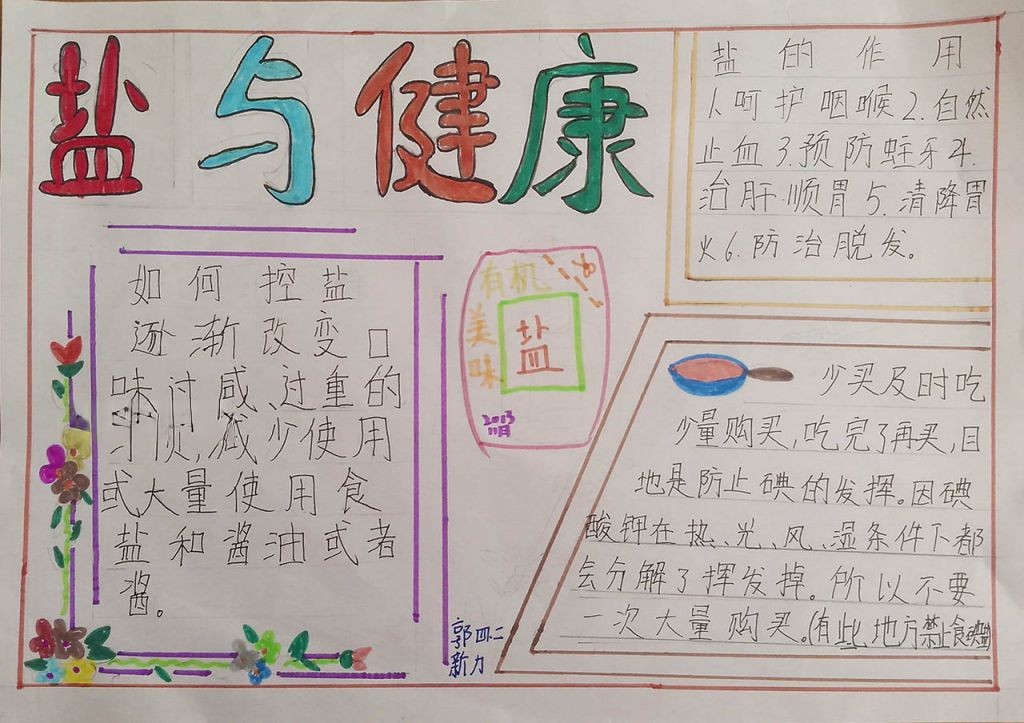 盐与健康
盐的作用
1.呵护咽喉2.自然
止血3.预防蛀牙4.
治肝顺胃5.清降胃
火6.防治脱发。
如何控盐
逐渐改变口
味过咸、过重的
习惯,减少使用
或大量使用食
盐和酱油或者
酱。
有机
美味
盐
少买及时吃
少量购买,吃完了再买,目
地是防止碘的发挥。因碘
酸钾在热、光、风、湿条件下都
会分解了挥发掉。所以不要
一次大量购买。(有些地方禁止食
郭 四二
新力